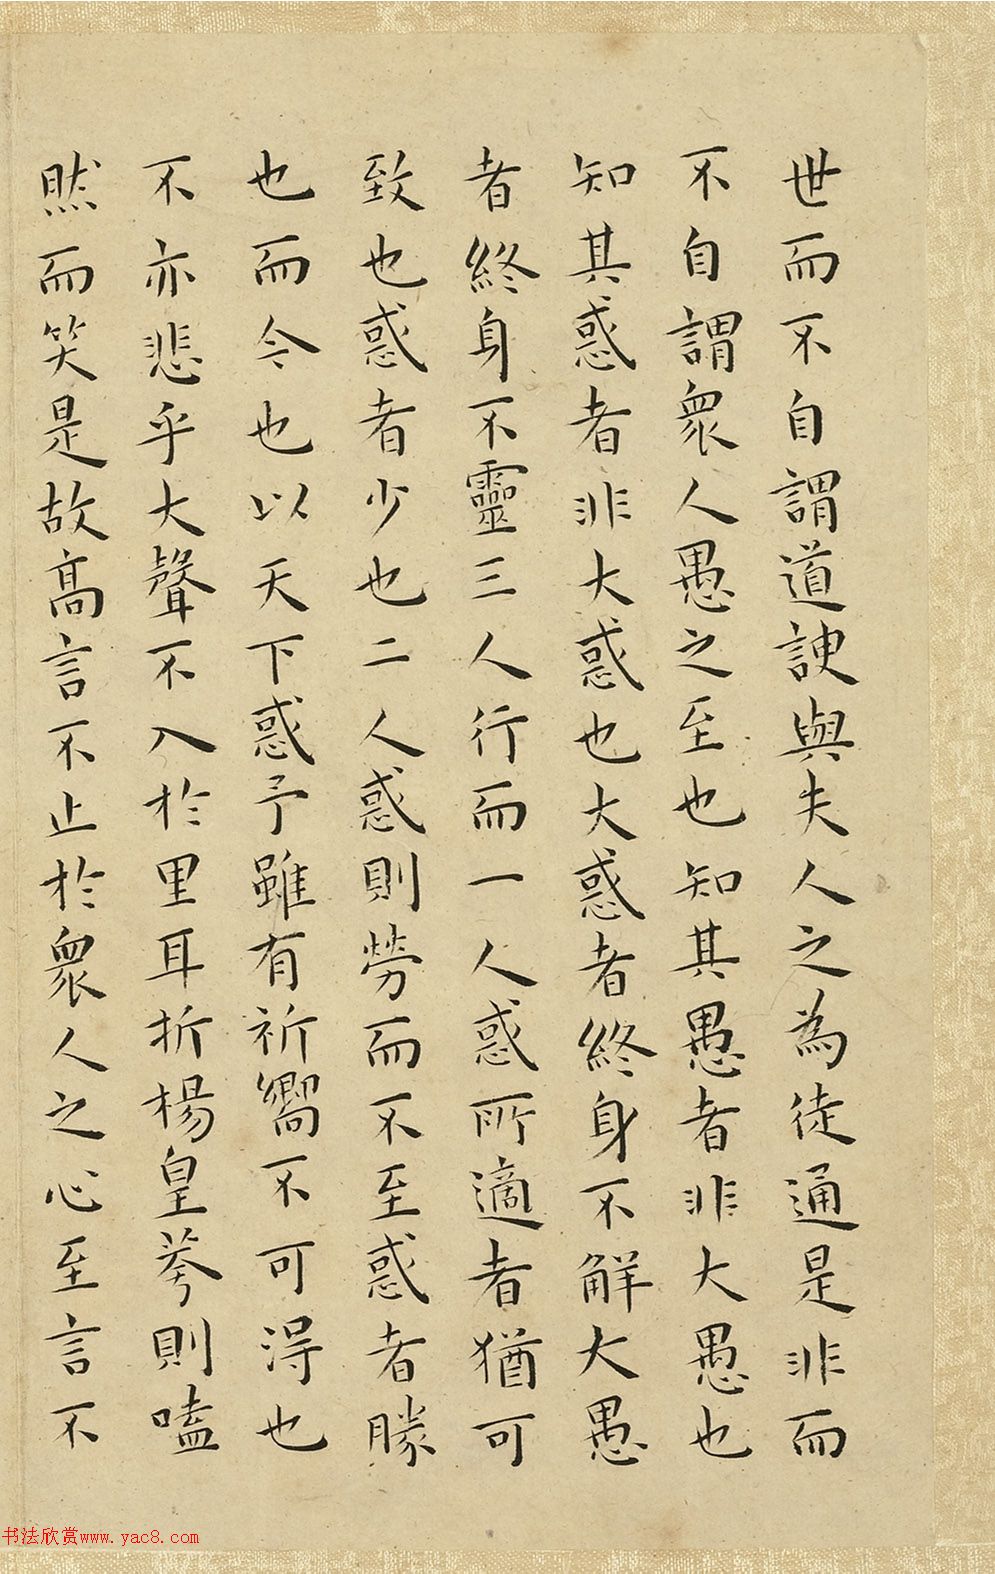 世而不自謂道諛與夫人之為徒通是非而
不自謂眾人愚之至也知其愚者非大愚也
知其惑者非大惑也大惑者終身不解大愚
者終身不靈三人行而一人惑所適者猶可
致也惑者少也二人惑則勞而不至惑者勝
也而今也以天下惑予雖有祈嚮不可得也
不亦悲乎大聲不入於里耳折楊皇荂則嗑
然而笑是故高言不止於眾人之心至言不
书法欣赏www.yac8.com